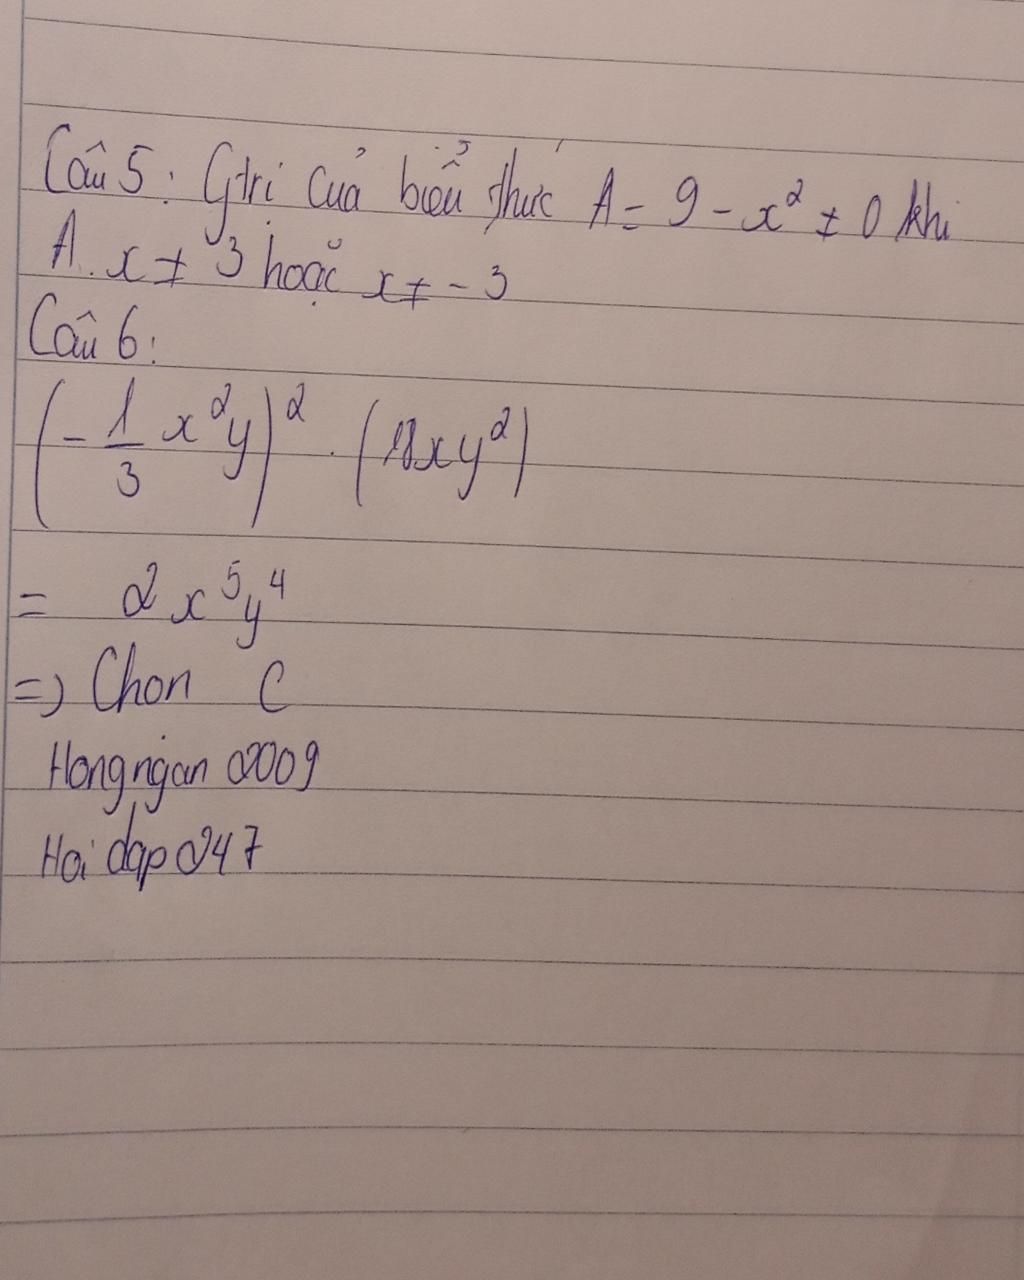 Câu 5: Gtrị của biểu thức A = 9 - x² ≠ 0 khi
A. x ≠ 3 hoặc x ≠ - 3
Câu 6:
(- 1/3 x²y)² . (18xy²)
= 2x⁵y⁴
=> Chọn C
Hongngan 2009
Hoi dap 247